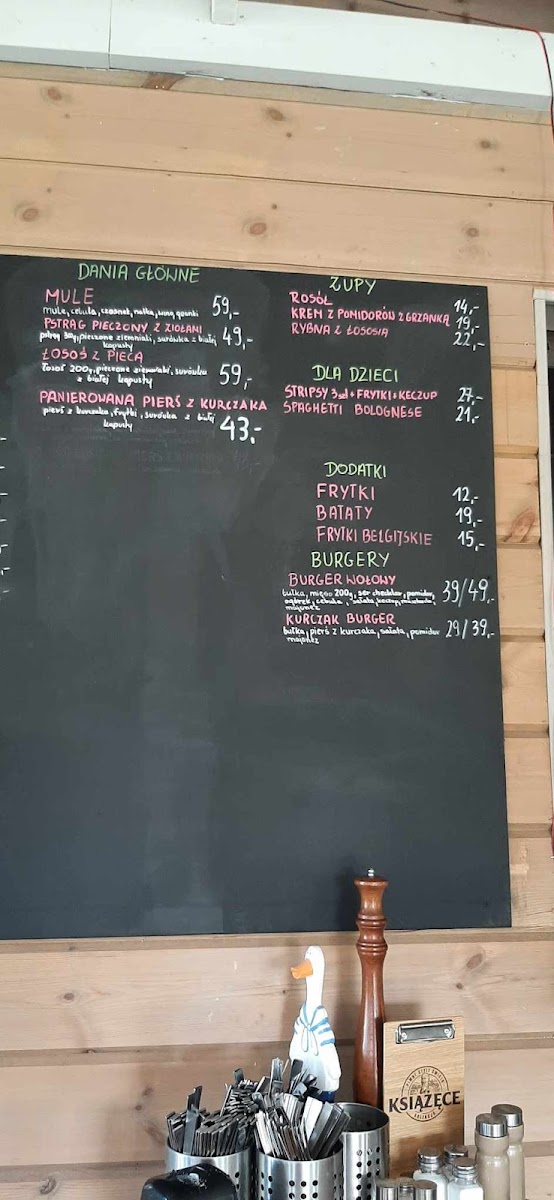 DANIA GŁÓWNE
MULE
mule, cebula, czosnek, natka, wino, grzanki
59,-
PSTRĄG PIECZONY Z ZIOŁAMI
pstrąg 300g, pieczone ziemniaki, surówka z białej
kapusty
49,-
ŁOSOŚ Z PIECA
łosoś 200g, pieczone ziemniaki, surówka
z białej kapusty
59,-
PANIEROWANA PIERŚ Z KURCZAKA
pierś z kurczaka, frytki, surówka z białej
kapusty
43,-
ZUPY
ROSÓŁ 14,-
KREM Z POMIDORÓW Z GRZANKĄ 19,-
RYBNA Z ŁOSOSIA 22,-
DLA DZIECI
STRIPSY 3szt + FRYTKI + KECZUP 27,-
SPAGHETTI BOLOGNESE 21,-
DODATKI
FRYTKI 12,-
BATATY 19,-
FRYTKI BELGIJSKIE 15,-
BURGERY
BURGER WOŁOWY
bułka, mięso 200g, ser cheddar, pomidor,
ogórek, cebula, sałata, keczup, musztarda,
majonez
39/49,-
KURCZAK BURGER
bułka, pierś z kurczaka, sałata, pomidor
majonez
29/39,-
KSIĄŻĘCE